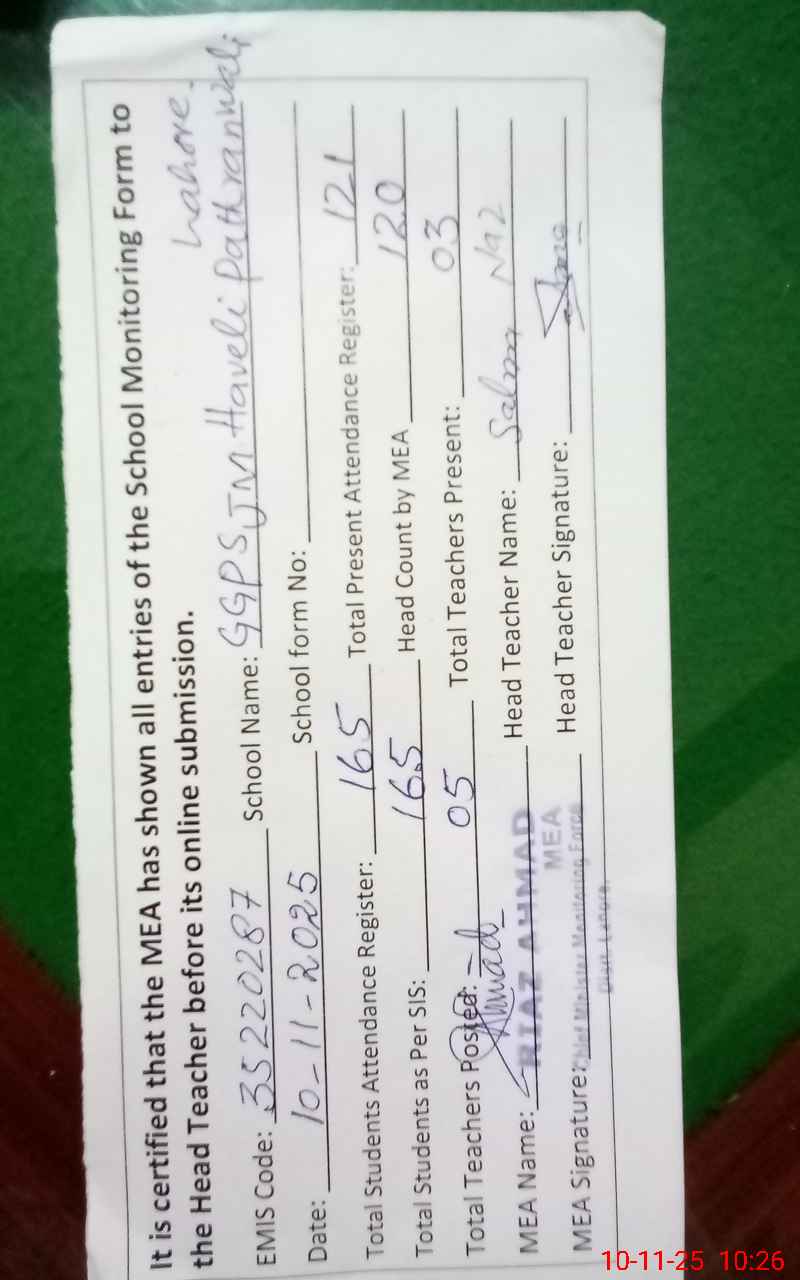 It is certified that the MEA has shown all entries of the School Monitoring Form to
the Head Teacher before its online submission.
Lahore.
EMIS Code: 35220287 School Name: GGPS JM Haveli Pathranwali
Date: 10-11-2025 School form No:
Total Students Attendance Register: 165 Total Present Attendance Register: 121
Total Students as Per SIS: 165 Head Count by MEA 120
Total Teachers Posted: 05 Total Teachers Present: 03
MEA Name: Ahmad Head Teacher Name: Salma Naz
RIAZ AHMAD
MEA
MEA Signature: Head Teacher Signature:
Chief Minister Monitoring Force
Distt. Lahore.
10-11-25 10:26